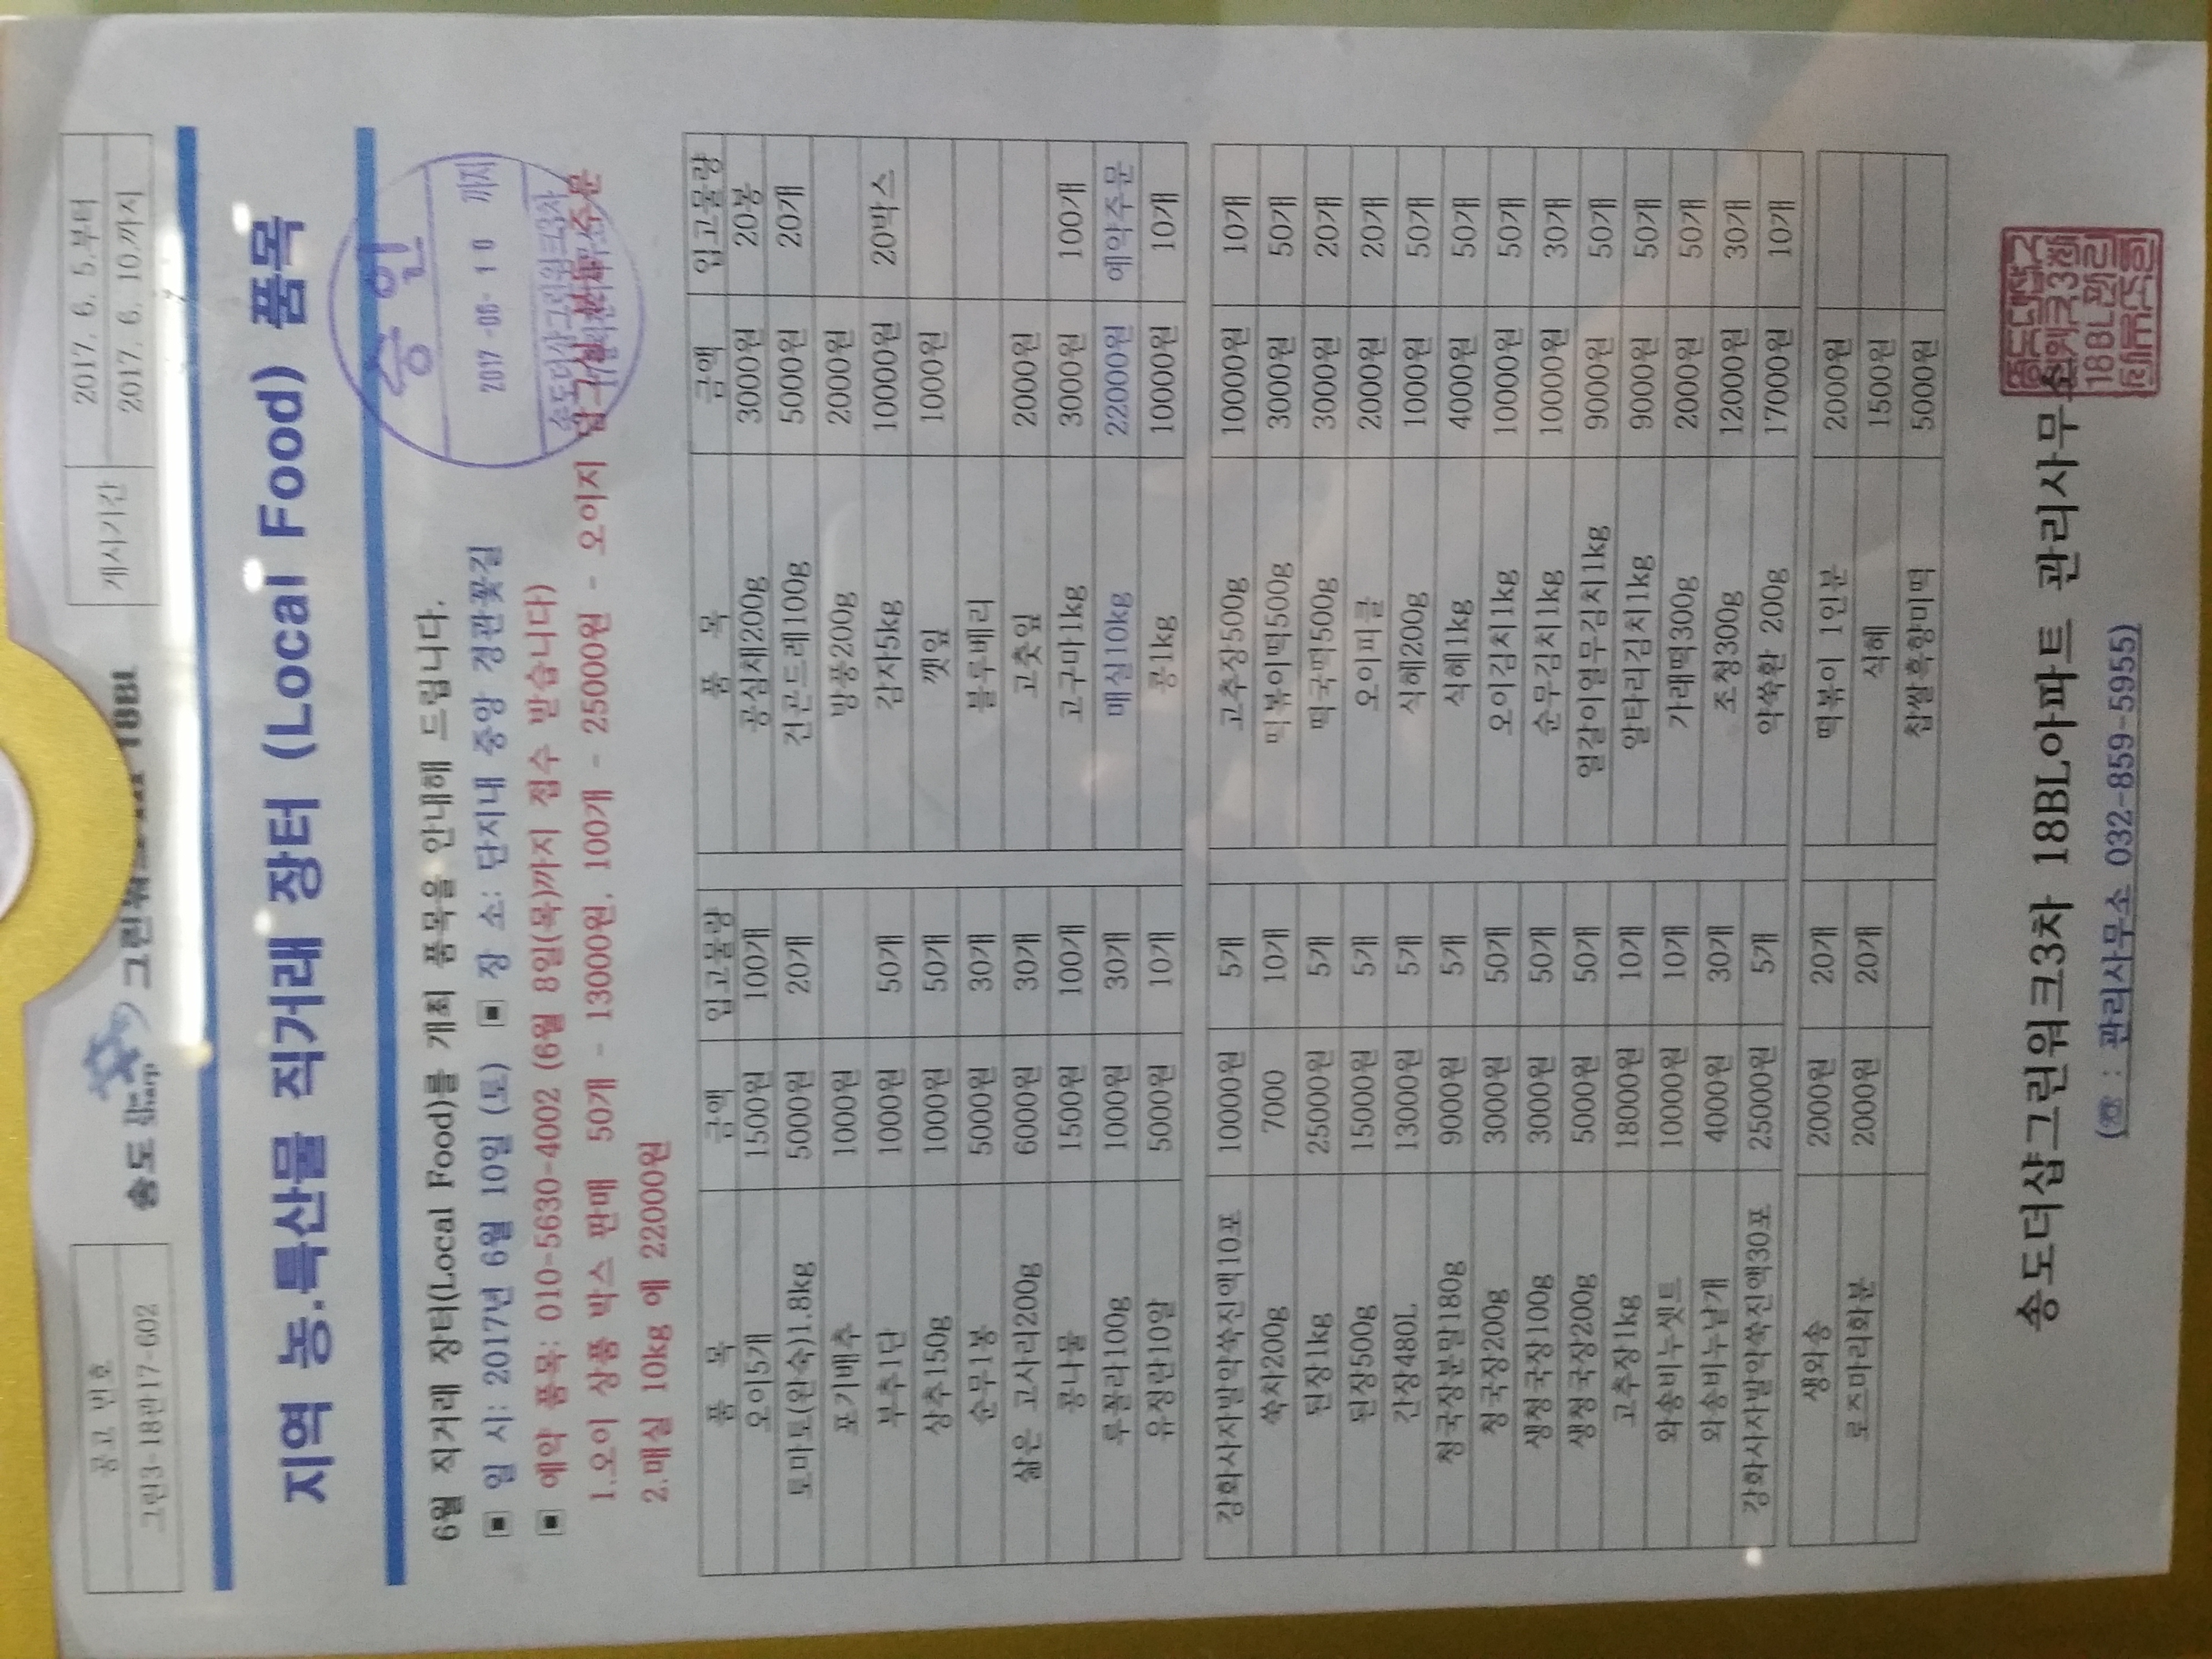 공고 번호
그린3-18관17-602
송도 더샵 그린워크3차 18BL
게시기간
2017. 6. 5.부터
2017. 6. 10.까지
지역 농.특산물 직거래 장터 (Local Food) 품목
승인
2017 -06- 10 까지
6월 직거래 장터(Local Food)를 개최 품목을 안내해 드립니다.
▣ 일 시: 2017년 6월 10일 (토) ▣ 장 소: 단지내 중앙 경관꽃길
▣ 예약 품목: 010-5630-4002 (6월 8일(목)까지 접수 받습니다)
1.오이 상품 박스 판매 50개 - 13000원, 100개 - 25000원 - 오이지 담그실 분 주문
2.매실 10kg 에 22000원
품 목 금액 입고물량 품 목 금액 입고물량
오이5개 1500원 100개 공심채200g 3000원 20봉
토마토(완숙)1.8kg 5000원 20개 건곤드레100g 5000원 20개
포기배추 1000원 방풍200g 2000원
부추1단 1000원 50개 감자5kg 10000원 20박스
상추150g 1000원 50개 깻잎 1000원
순무1봉 5000원 30개 블루베리
삶은 고사리200g 6000원 30개 고춧잎 2000원
콩나물 1500원 100개 고구마1kg 3000원 100개
루꼴라100g 1000원 30개 매실10kg 22000원 예약주문
유정란10알 5000원 10개 콩1kg 10000원 10개
강화사자발약쑥진액10포 10000원 5개 고추장500g 10000원 10개
쑥차200g 7000 10개 떡볶이떡500g 3000원 50개
된장1kg 25000원 5개 떡국떡500g 3000원 20개
된장500g 15000원 5개 오이피클 2000원 20개
간장480L 13000원 5개 식혜200g 1000원 50개
청국장분말180g 9000원 5개 식혜1kg 4000원 50개
청국장200g 3000원 50개 오이김치1kg 10000원 50개
생청국장100g 3000원 50개 순무김치1kg 10000원 30개
생청국장200g 5000원 50개 얼갈이열무김치1kg 9000원 50개
고추장1kg 18000원 10개 알타리김치1kg 9000원 50개
와송비누셋트 10000원 10개 가래떡300g 2000원 50개
와송비누낱개 4000원 30개 조청300g 12000원 30개
강화사자발약쑥진액30포 25000원 5개 약쑥환 200g 17000원 10개
생와송 2000원 20개 떡볶이 1인분 2000원
로즈마리화분 2000원 20개 식혜 1500원
찹쌀흑향미떡 5000원
송도더샵그린워크3차 18BL아파트 관리사무소
(☏ : 관리사무소 032-859-5955)